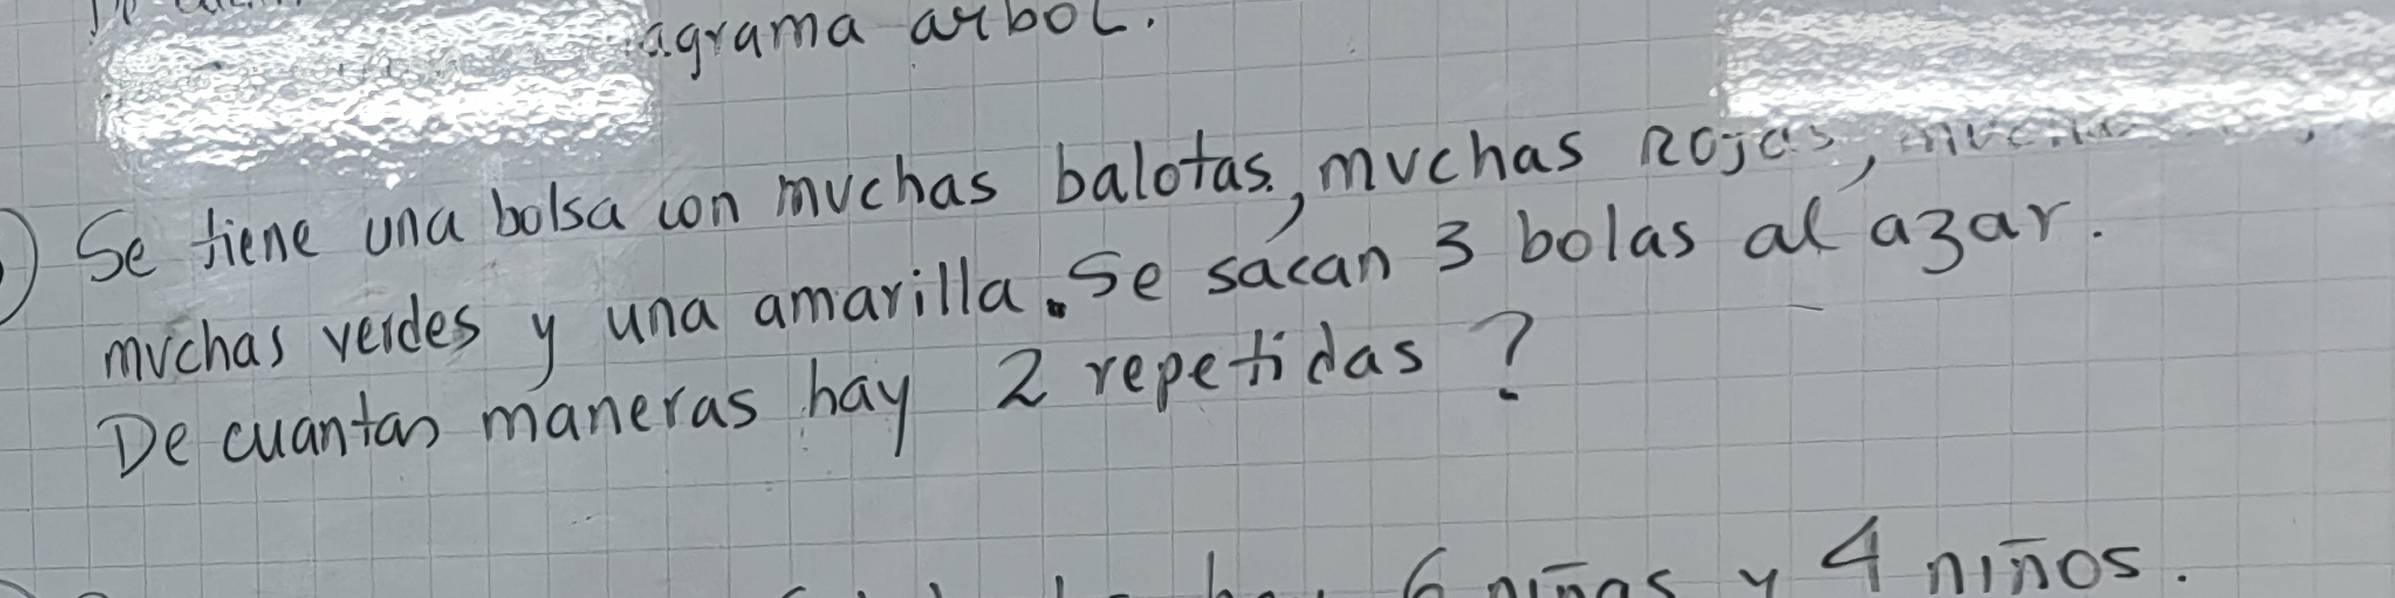 agrama arbol.
Se tiene una bolsa con muchas balotas, muchas Rojas,
muchas verdes y una amarilla. Se sacan 3 bolas al azar.
De cuantas maneras hay 2 repetidas?
6 niñas y 4 niños.